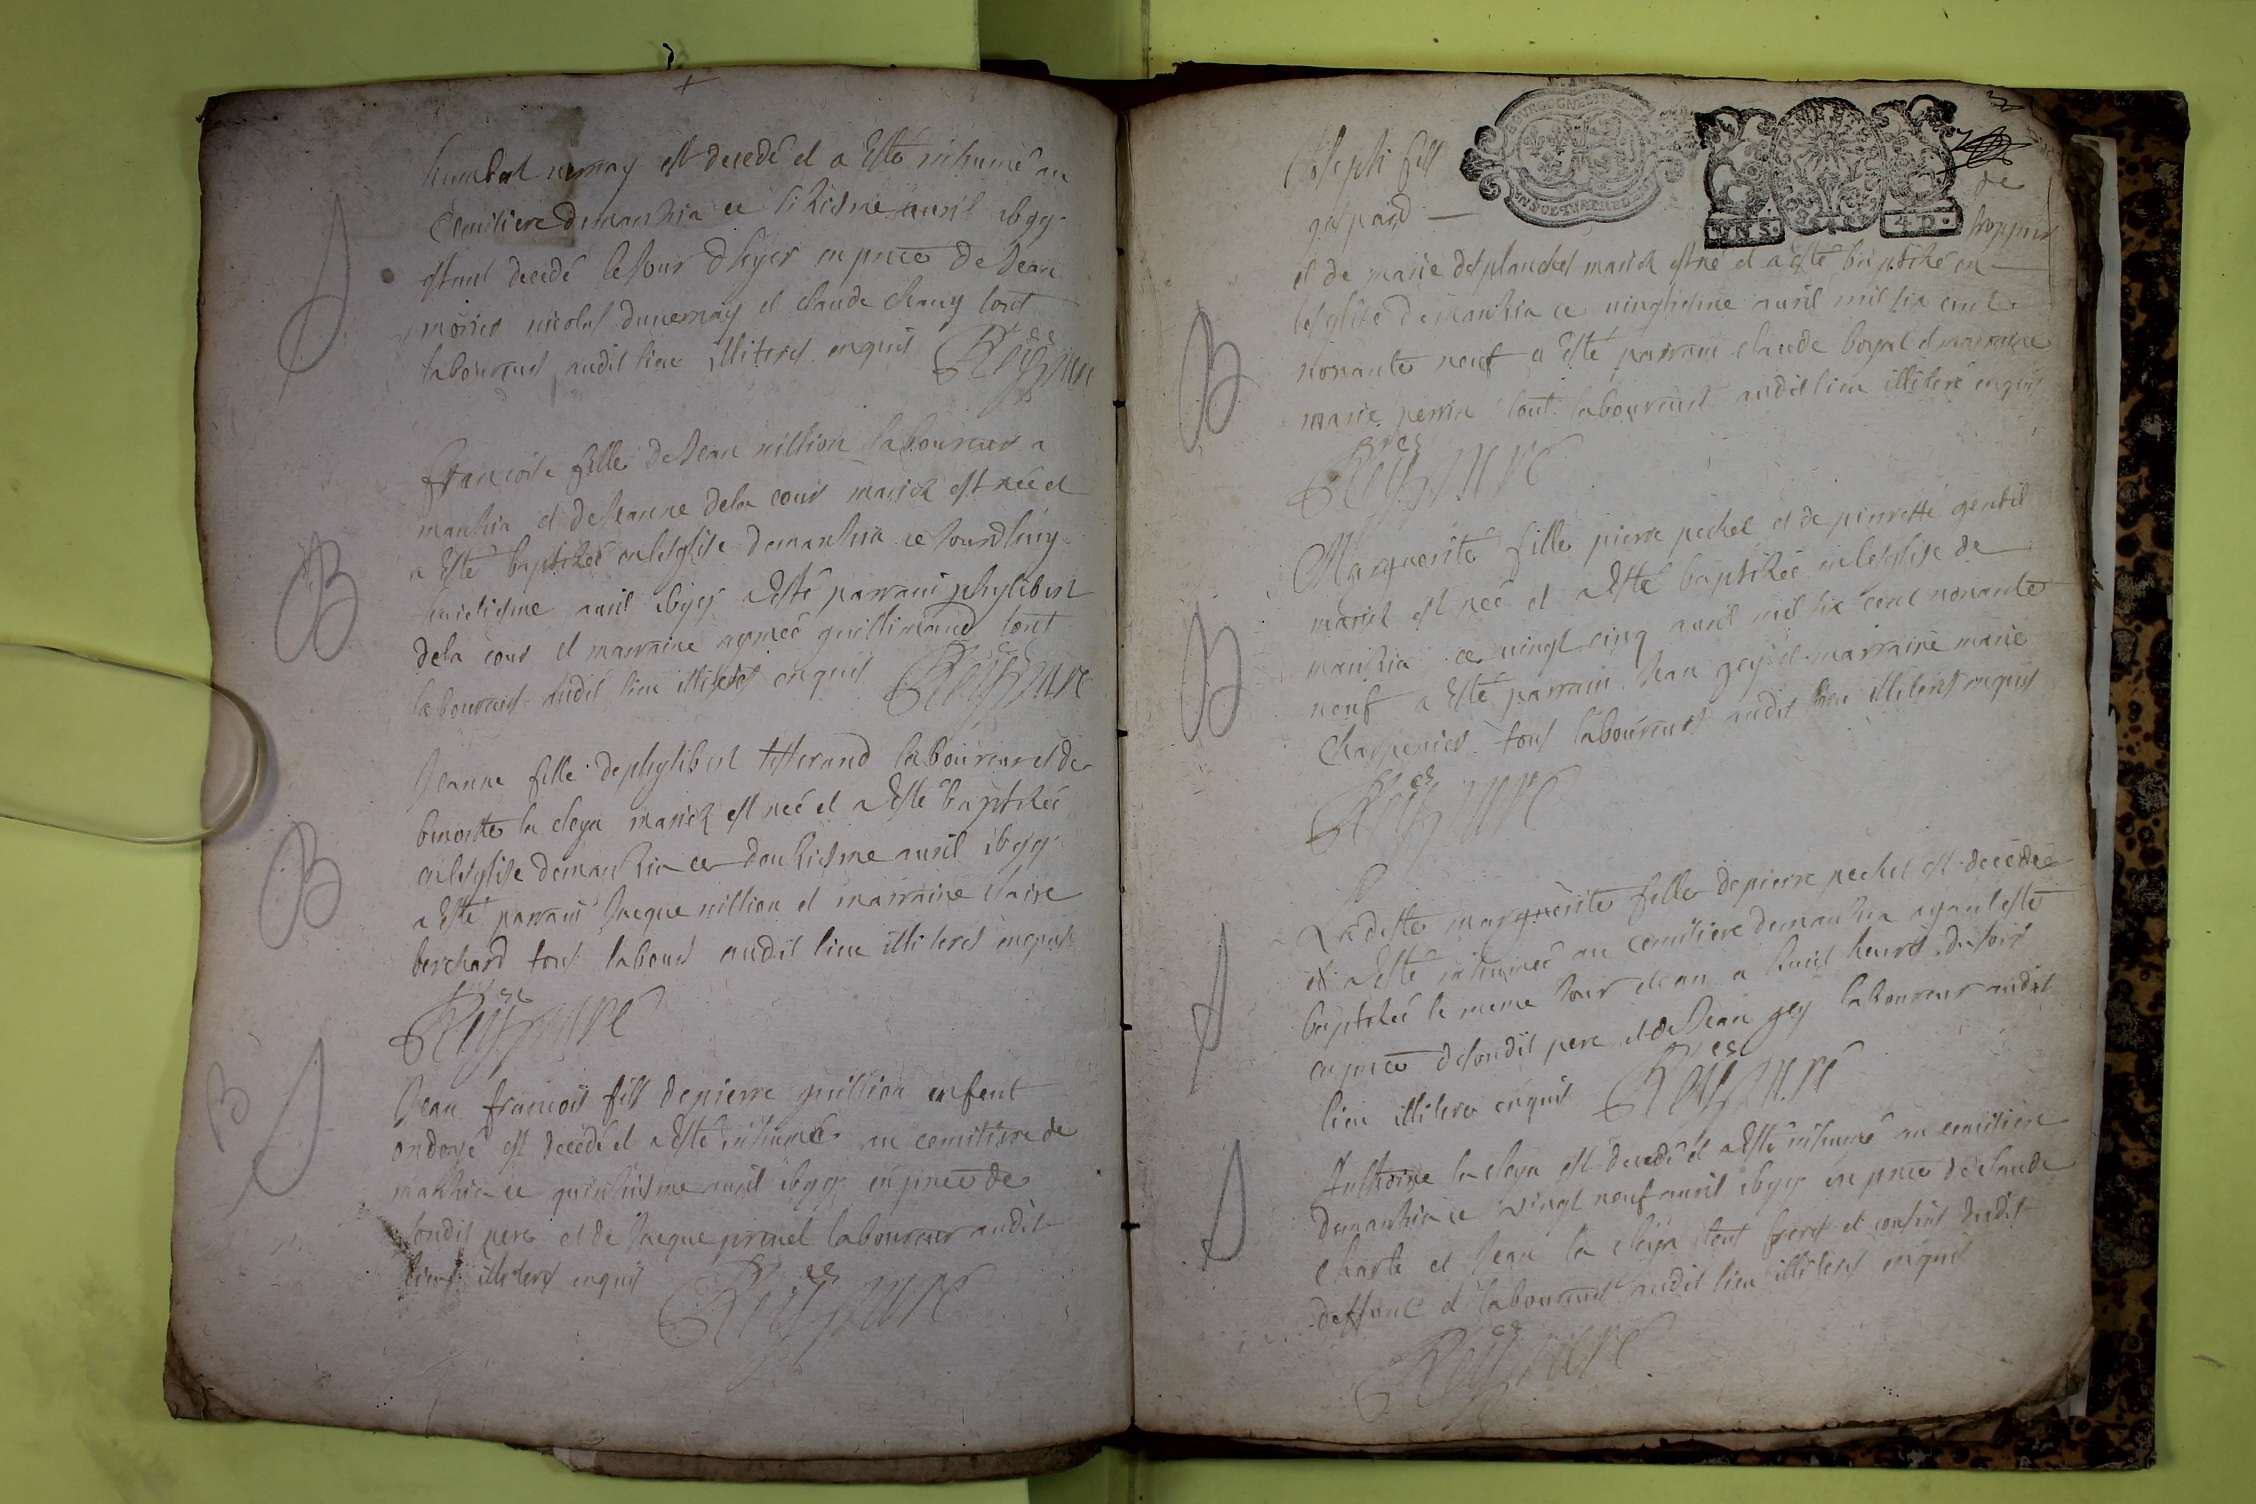 est decedé et a Esté inhumé au
Cemitiere de manthia ce sixiesme auril 1699
estant decedé le Jour dhyer en pnce de Jean
nicolas duuernay et claude chauy tout
laboureurs audit lieu illiteres enquis
Reyss cure
francoise fille de Jean million laboureur a
manthia et de Jeanne dela cour mariéz est née et
a Esté baptizée en lesglise de manthia ce Jourdhuy
huictiesme auril 1699 a Esté parrain phylibert
dela cour et marraine aymeé guillimand tout
laboureurs audit lieu illiteres enquis
Reyss cure
Jeanne fille de phylibert tisserand laboureur et de
benoitte la cleya mariéz est neé et a Esté baptizée
en lesglise de manthia ce douziesme auril 1699
a Esté parrain Jacque million et marraine claire
berchard tous labours audit lieu illiteres enquis
Reyss cure
B
Jean francois fils de pierre million enfent
ondoyé est decedé et a Esté inhumé au cemitiere de
manthia ce quinziesme auril 1699 en pnce de
sondit pere et de Jacque laboureur audit
lieu illiteres enquis
Reyss cure
Joseph fils de
gaspard
et de marie desplanches mariéz est né et a Esté baptizé en
lesglise de manthia ce uingtiesme auril mil six cent
nonante neuf a Esté parrain claude boyat et marraine
marie perrin tout laboureurs audit lieu illiteré enquis
Reyss cure
Marguerite fille pierre pechet et de pierrette gentil
mariéz est neé et a Esté baptizée en lesglise de
manthia ce uingt cinq auril mil six cent nonante
neuf a Esté parrain Jean gey et marraine marie
Charpenier tous laboureurs audit lieu illiteres enquis
Reyss cure
Ladiste marguerite fille de pierre pechet est decedeé
et a Esté inhumeé au cemitiere de manthia ayant esté
baptizée le meme Jour et an a huict heures du soir
en pnce de sondit pere et de Jean gey laboureur audit
lieu illitere enquis
Reyss cure
Anthoine la cleya est decedé et a Esté inhumé au cemitiere
de manthia ce vingt neuf auril 1699 en pnce de claude
charle et Jean la cleya tout freres et cousins dudit
deffunt et laboureurs audit lieu illiteres enquis
Reyss cure